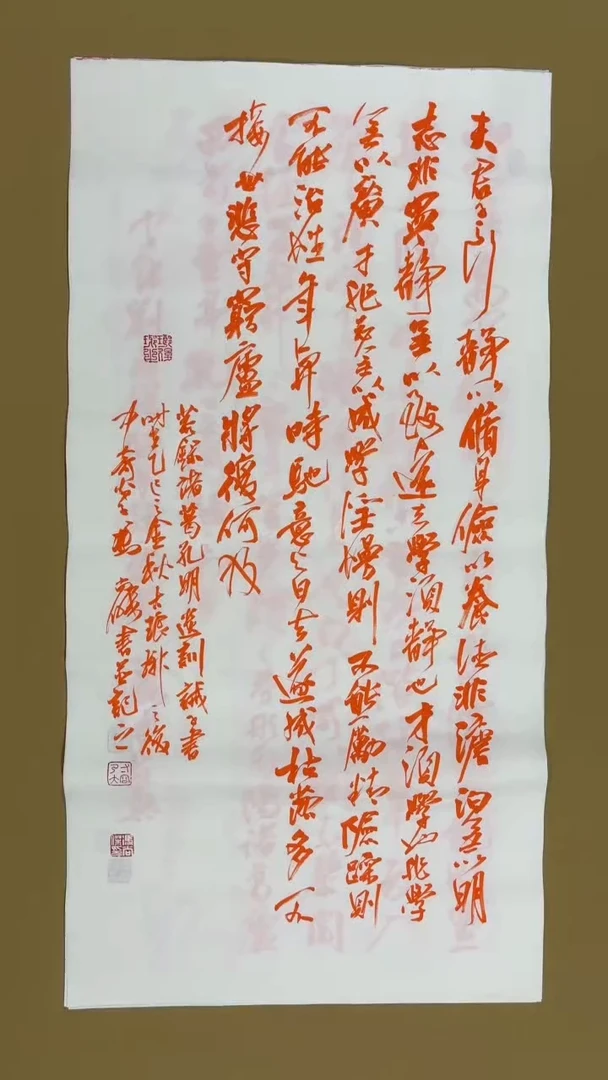 夫君子之行静以脩身儉以養德非澹泊無以明
志非寧静無以致遠夫學須静也才須學也非學
無以廣才非志無以成學淫慢則不能勵精險躁則
不能治性年與時馳意與日去遂成枯落多不
接世悲守窮廬將復何及
錄諸葛孔明遺訓誡子書
時在乙巳之金秋古琅琊之後
書並記之